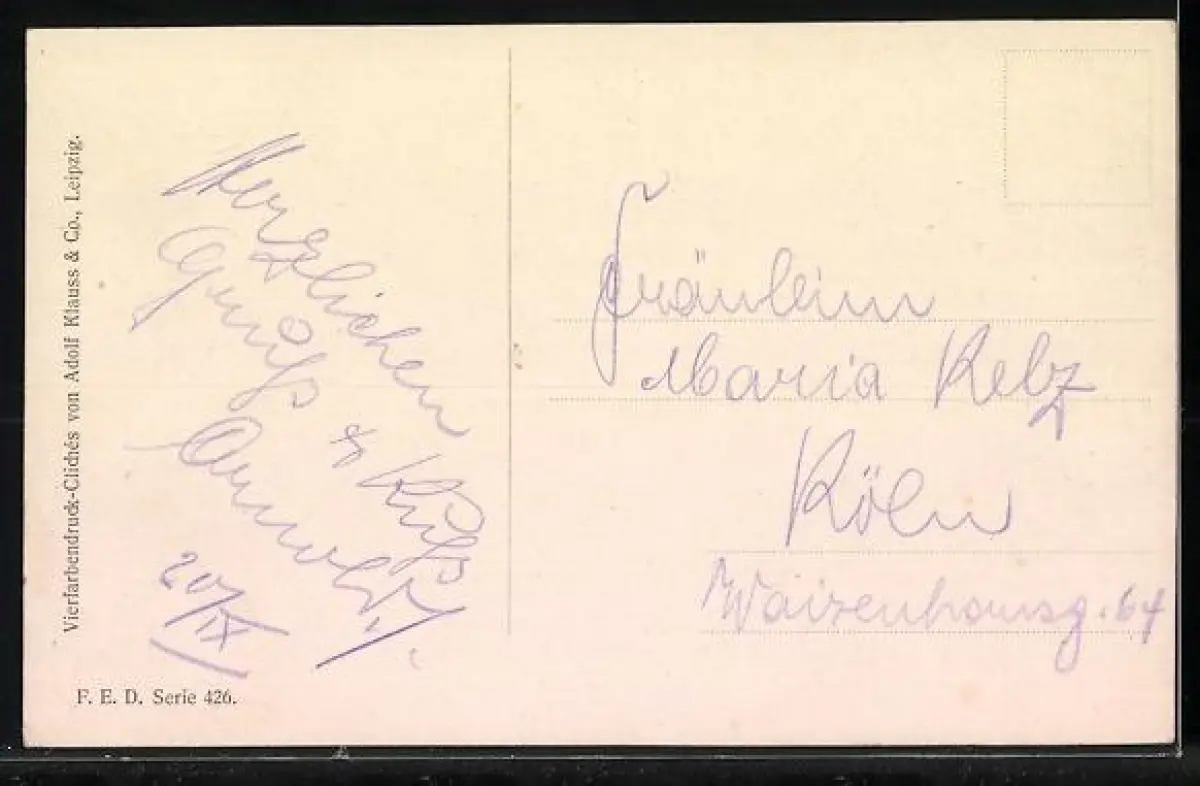 Vierfarbendruck-Clichés von Adolf Klauss & Co., Leipzig.
Herzlichen
Gruß
& Kuß
20/IX
F. E. D. Serie 426.
Fräulein
Maria Kelz
Köln
Waisenhausg. 64